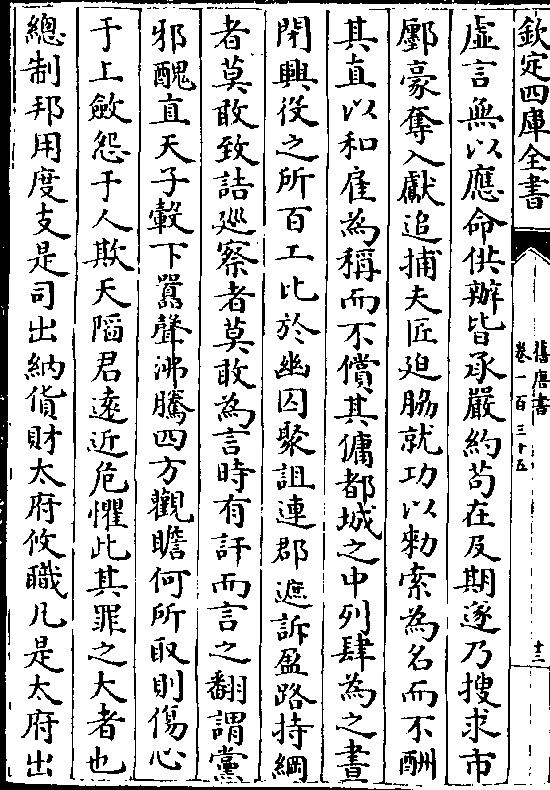 欽定四庫全書
舊唐書
卷一百三十五
十三
虚言無以應命供辦皆承嚴約苟在及期遂乃搜求市
鄽豪奪入獻追捕夫匠廹脇就功以勅索為名而不酬
其直以和雇為稱而不償其傭都城之中列肆為之晝
閉興役之所百工比於幽囚聚詛連郡遮訴盈路持綱
者莫敢致詰廵察者莫敢為言時有訐而言之翻謂黨
邪醜直天子轂下囂聲沸騰四方觀瞻何所取則傷心
于上斂怨于人欺天䧟君遠近危懼此其罪之大者也
總制邦用度支是司出納貨財太府攸職凡是太府出